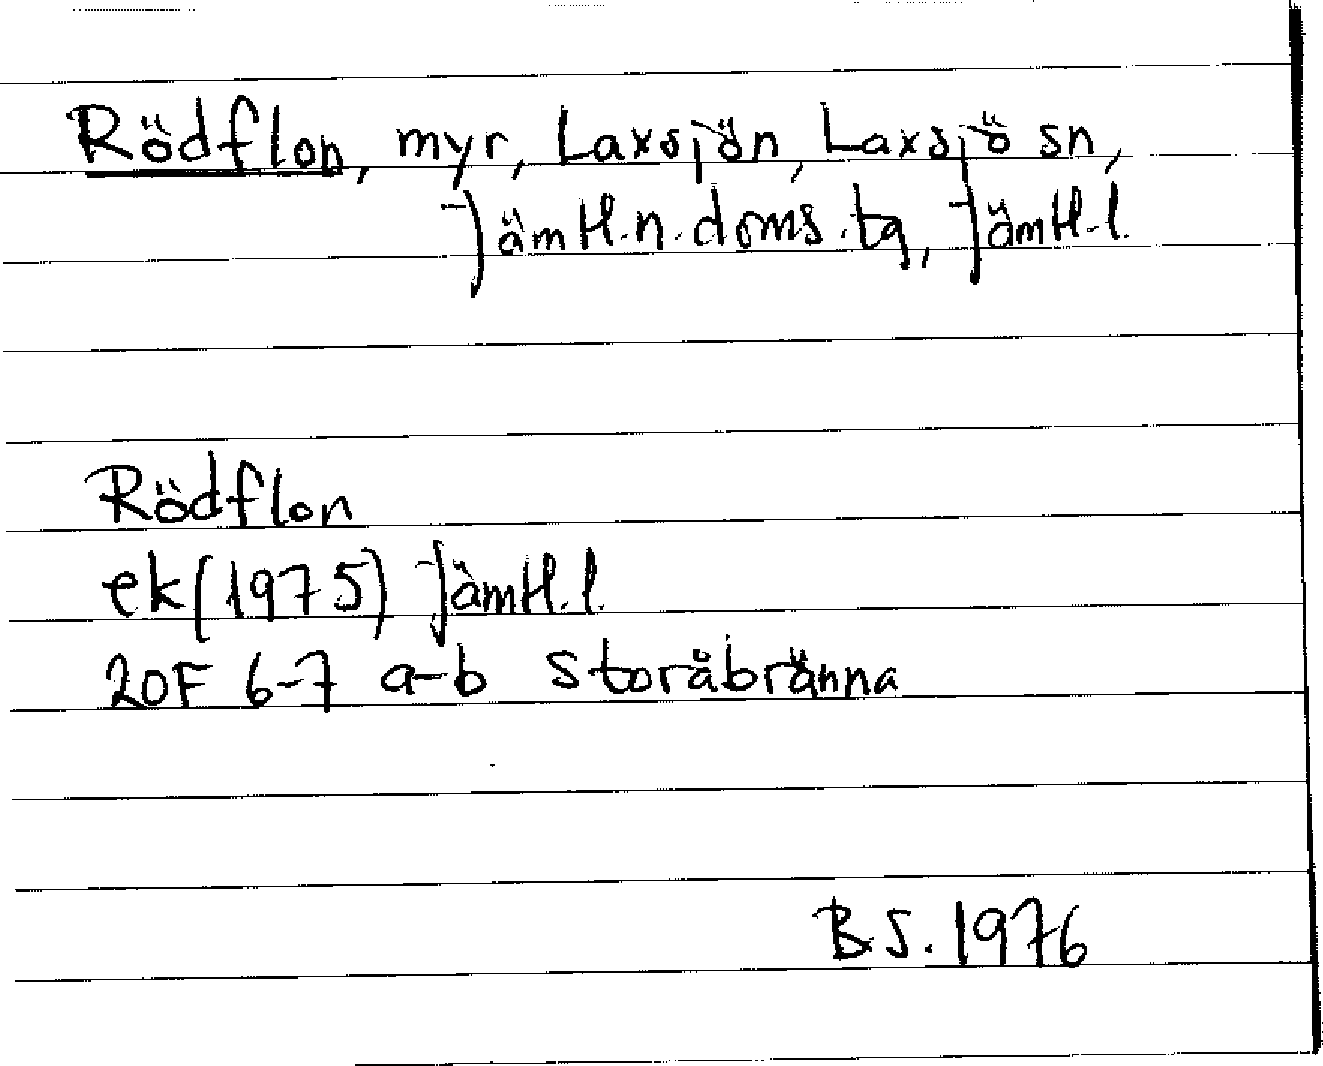 Rödflon, myr, Laxsjön, Laxsjö sn,
Jämtl.n.doms.tg, Jämtl.l.
Rödflon
ek(1975) Jämtl.l.
20F 6-7 a-b Storåbränna
BS. 1976